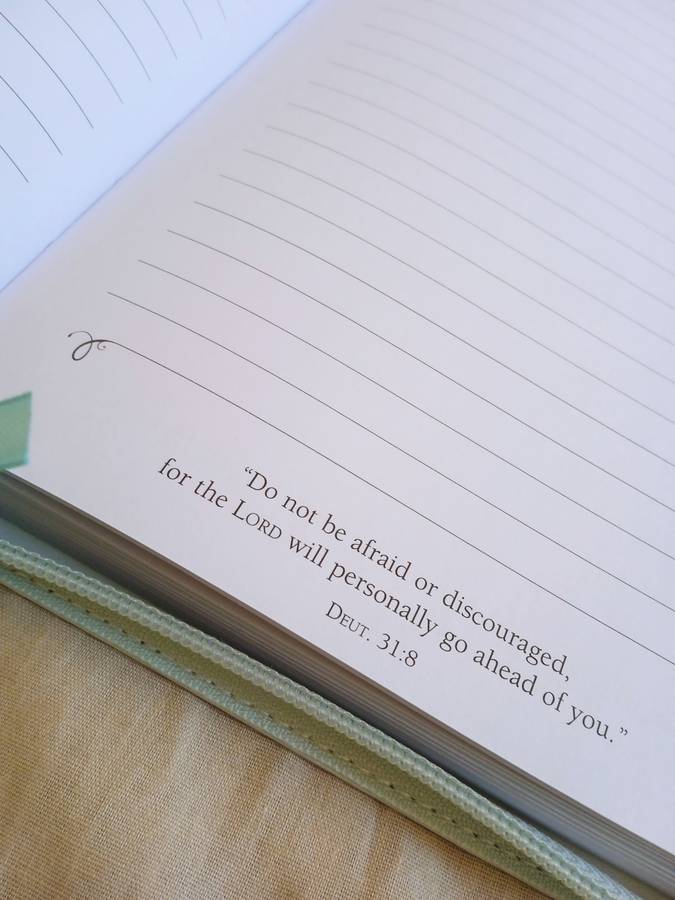 “Do not be afraid or discouraged,
for the LORD will personally go ahead of you.”
DEUT. 31:8